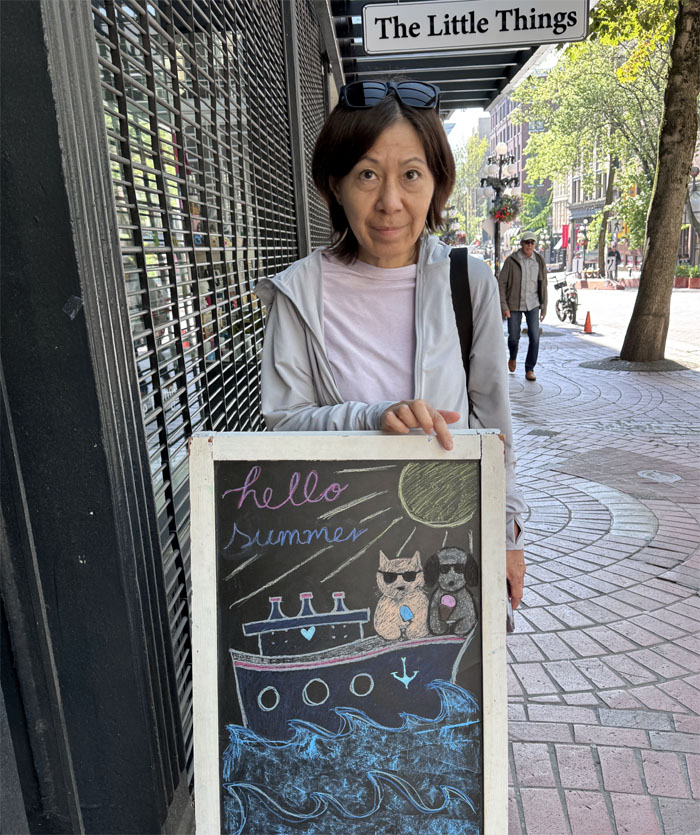 The Little Things
hello
summer